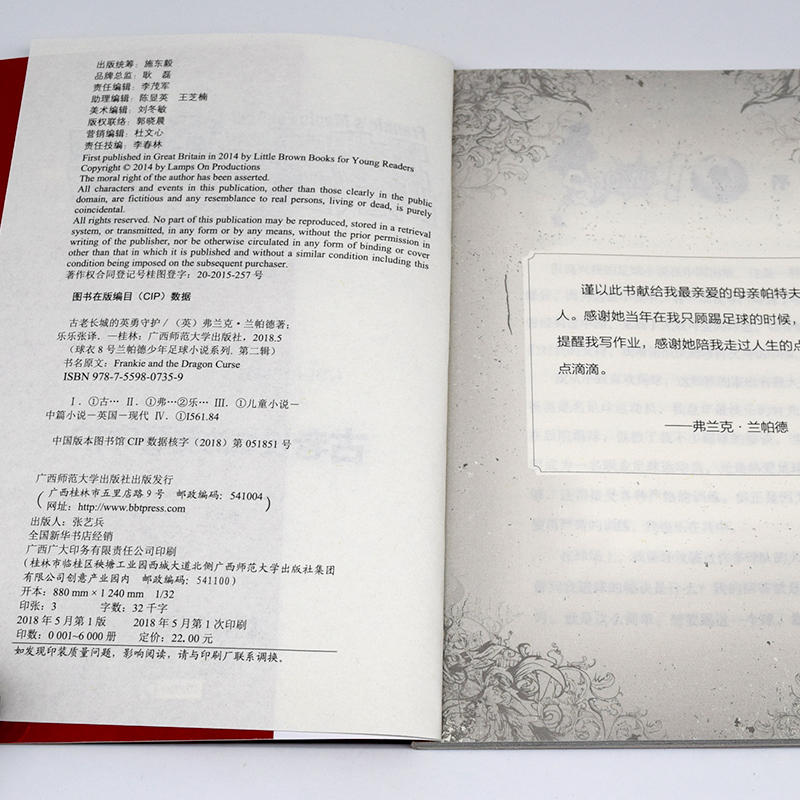 出版统筹：施东毅
品牌总监：耿 磊
责任编辑：李茂军
助理编辑：陈显英 王芝楠
美术编辑：刘冬敏
版权联络：郭晓晨
营销编辑：杜文心
责任技编：李春林
First published in Great Britain in 2014 by Little Brown Books for Young Readers
Copyright © 2014 by Lamps On Productions
The moral right of the author has been asserted.
All characters and events in this publication, other than those clearly in the public
domain, are fictitious and any resemblance to real persons, living or dead, is purely
coincidental.
All rights reserved. No part of this publication may be reproduced, stored in a retrieval
system, or transmitted, in any form or by any means, without the prior permission in
writing of the publisher, nor be otherwise circulated in any form of binding or cover
other than that in which it is published and without a similar condition including this
condition being imposed on the subsequent purchaser.
著作权合同登记号桂图登字：20-2015-257 号
图书在版编目（CIP）数据
古老长城的英勇守护／（英）弗兰克·兰帕德著；
乐乐张译．—桂林：广西师范大学出版社，2018.5
（球衣 8 号兰帕德少年足球小说系列．第二辑）
书名原文：Frankie and the Dragon Curse
ISBN 978-7-5598-0735-9
Ⅰ．①古… Ⅱ．①弗…②乐… Ⅲ．①儿童小说－
中篇小说－英国－现代 Ⅳ．①I561.84
中国版本图书馆 CIP 数据核字（2018）第 051851 号
广西师范大学出版社出版发行
（广西桂林市五里店路 9 号 邮政编码：541004
网址：http://www.bbtpress.com）
出版人：张艺兵
全国新华书店经销
广西广大印务有限责任公司印刷
（桂林市临桂区秧塘工业园西城大道北侧广西师范大学出版社集团
有限公司创意产业园内 邮政编码：541100）
开本：880 mm×1 240 mm 1/32
印张：3 字数：32 千字
2018 年 5 月第 1 版 2018 年 5 月第 1 次印刷
印数：0 001~6 000 册 定价：22.00 元
如发现印装质量问题，影响阅读，请与印刷厂联系调换。
谨以此书献给我最亲爱的母亲帕特夫
人。感谢她当年在我只顾踢足球的时候，
提醒我写作业，感谢她陪我走过人生的点
点滴滴。
——弗兰克·兰帕德